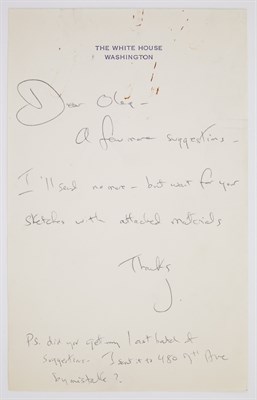 THE WHITE HOUSE
WASHINGTON
Dear Oleg -
A few more suggestions -
I'll send no more - but wait for your
sketches with attached materials
Thanks
J.
P.S. did you get my last batch of
suggestions - I sent to 480 7th Ave
by mistake?